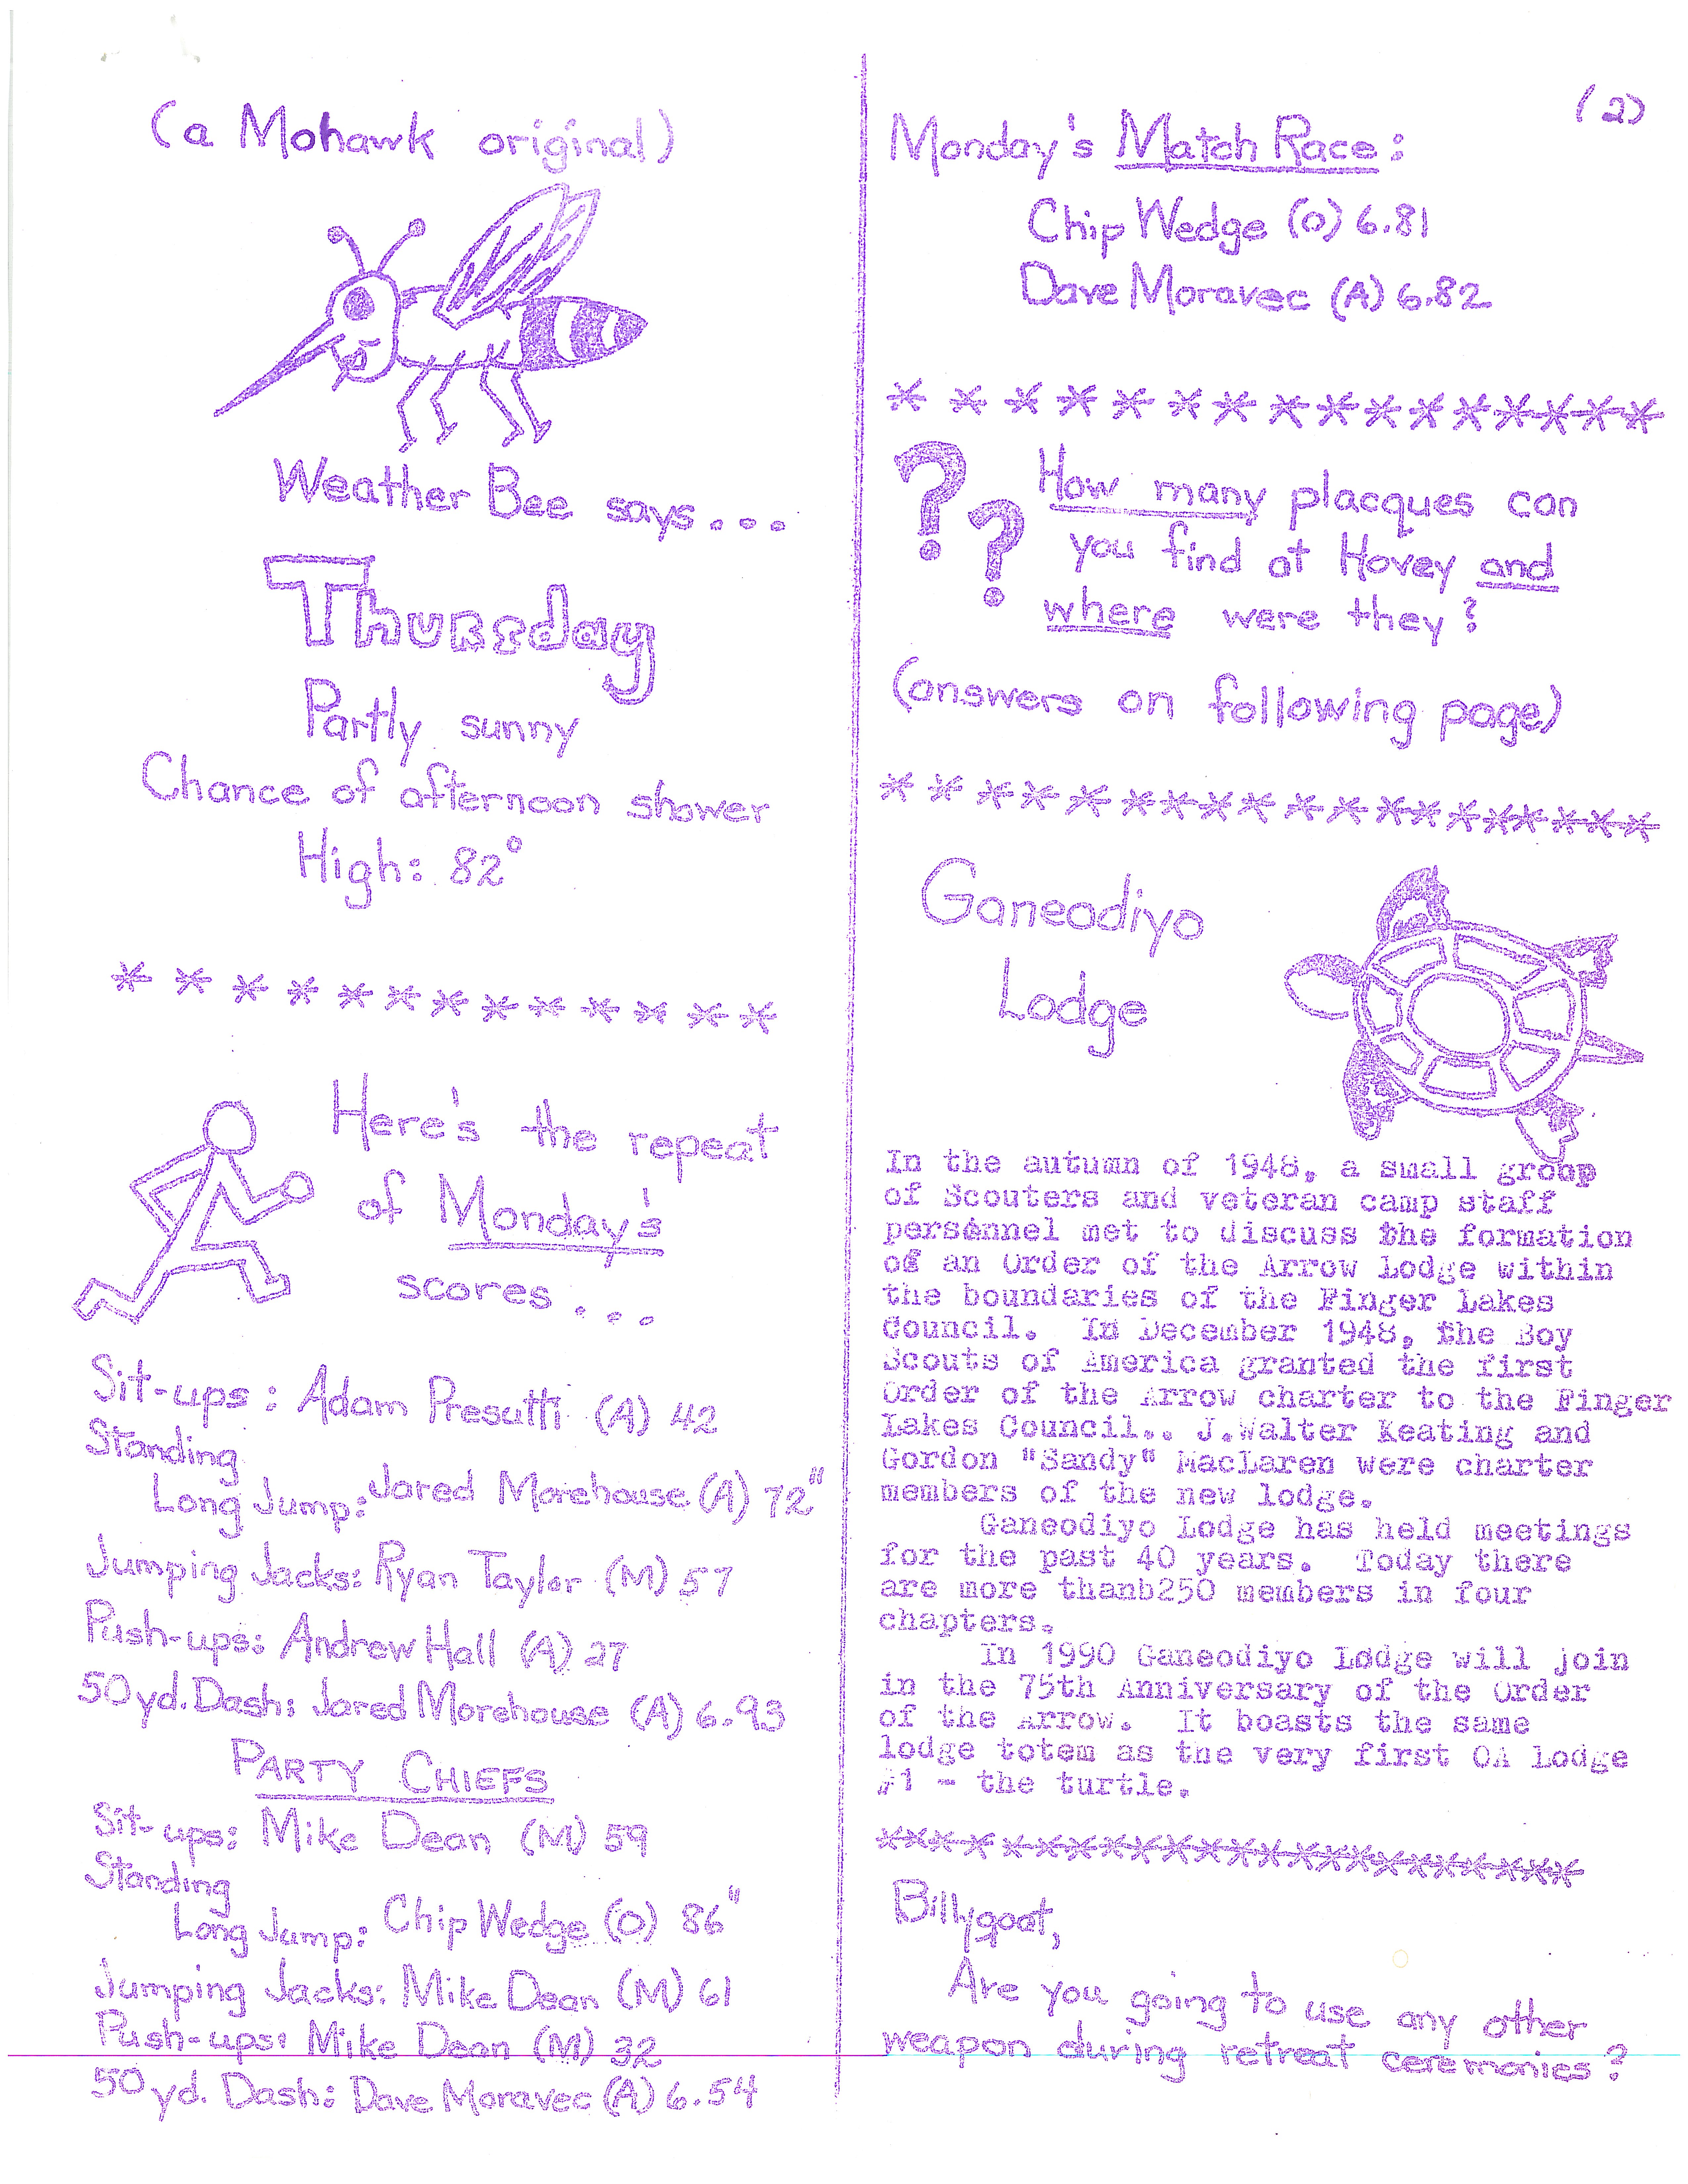 (a Mohawk original)
Weather Bee says...
Thursday
Partly sunny
Chance of afternoon shower
High: 82°
* * * * * * * * * * * * *
Here's the repeat
of Monday's
scores...
Sit-ups: Adam Presutti (A) 42
Standing
Long Jump: Jared Morehouse (A) 72"
Jumping Jacks: Ryan Taylor (M) 57
Push-ups: Andrew Hall (A) 27
50 yd. Dash: Jared Morehouse (A) 6.93
PARTY CHIEFS
Sit-ups: Mike Dean (M) 59
Standing
Long Jump: Chip Wedge (O) 86"
Jumping Jacks: Mike Dean (M) 61
Push-ups: Mike Dean (M) 32
50 yd. Dash: Dave Moravec (A) 6.54
(2)
Monday's Match Race:
Chip Wedge (O) 6.81
Dave Moravec (A) 6.82
* * * * * * * * * * * * * * * *
?? How many placques can
you find at Hovey and
where were they?
(answers on following page)
* * * * * * * * * * * * * * * * * *
Ganeodiyo
Lodge
In the autumn of 1948, a small group
of Scouters and veteran camp staff
personnel met to discuss the formation
of an Order of the Arrow Lodge within
the boundaries of the Finger Lakes
Council. In December 1948, the Boy
Scouts of America granted the first
Order of the Arrow charter to the Finger
Lakes Council.. J.Walter Keating and
Gordon "Sandy" MacLaren were charter
members of the new lodge.
Ganeodiyo Lodge has held meetings
for the past 40 years. Today there
are more thanb250 members in four
chapters.
In 1990 Ganeodiyo Lodge will join
in the 75th Anniversary of the Order
of the Arrow. It boasts the same
lodge totem as the very first OA Lodge
#1 - the turtle.
* * * * * * * * * * * * * * * * * * * *
Billygoat,
Are you going to use any other
weapon during retreat ceremonies?